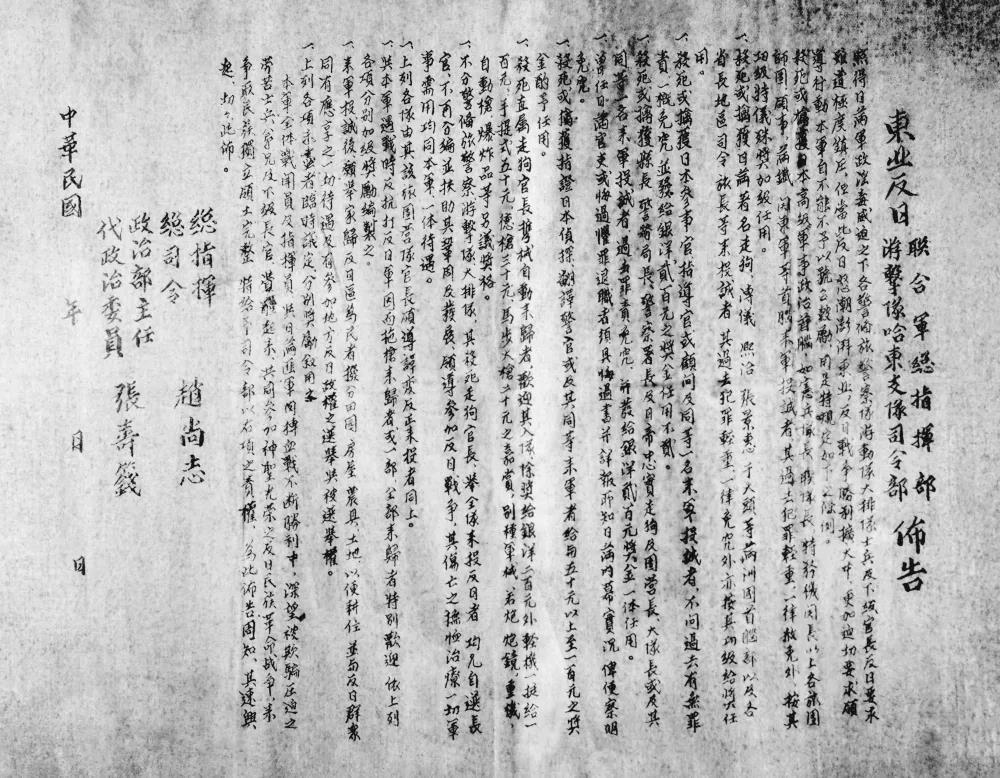 東北反日
聯合軍總指揮部
游擊隊哈東支隊司令部
佈告
照得日滿軍政淫毒威迫之下各警備旅警察隊游動隊大排隊士兵及下級官長反日要求
雖遭極度鎮压但當此反日怒潮澎湃東北反日戰争勝利擴大中更加迫切要求願
導行動本軍自不能不予以號召鼓勵用是特規定如下之條例。
一、殺死或擒獲日本高級軍事政治首腦如憲兵隊長 聯隊長 特務機関長以上各旅团
師团顧事滿鐵 関東軍等首腦來本軍投誠者其過去犯罪輕重一律赦免外按其
功級特儀殊獎加級任用。
一、殺死或擒獲日滿著名走狗 溥儀 熙洽 張景惠 于大頭等滿洲國首腦部以及各
省長地區司令旅長等來投誠者其過去犯罪輕重一律免究外亦按其功級給獎任
用。
一、殺死或擒獲日本參事官指導官或顧问及同等一名來軍投誠者不问過去有無罪
責一概免究並發給銀洋貳百元之獎金任用不貳。
一、殺死或擒獲縣長警務局長警察署長及日帝中心實走狗及團营長大隊長或及其
同等一名來軍投誠者過去罪責免究並發給銀洋貳百元獎金一体任用。
一、曾任日滿官吏或悔過懼罪退職者須具悔過書并詳報所知日滿内幕實況俾便察明
免究。
一、殺死或擒獲指證日本偵探翻譯警官或及其同等來軍者給與五十元以上至一百元之獎
金酌予任用。
一、殺死直属走狗官長攜械自動來歸者歡迎其入隊除獎給銀洋二百元外輕機一挺給一
百元手提式五十元德槍三十元馬步大槍二十元之嘉賞别種軍械若炮 炮鏡 重機
自動槍爆炸品等另議獎格。
一、不分警備旅警察游擊隊大排隊其殺死走狗官長舉全隊來投反日者均允自選長
官不再分編並扶助其鞏固及發展領導參加反日戰争其傷亡之撫恤治療一切軍
事需用均同本軍一体待遇。
一、上列各條由其該旅团营隊官長領導譁变反正來投者同上。
一、與本軍遇戰時反抗打反日軍因而抱槍來歸者或一部全部來歸者特别歡迎依上列
各項分别加級獎勵編製之。
一、來軍投誠後願舉家歸反日區為民者撥分田園房屋農具土地以便耕住並与反日群衆
同有應享之一切待遇及有參加地方反日政權之選舉與被選舉權。
一、上列各項未盡者臨時議定分别獎勵叙用之
本軍全体戰鬥員及指揮員與日滿匪軍周持血戰不斷勝利中深望被欺騙压迫之
勞苦士兵弟兄及下級長官嘩醒起來共同參加神聖光榮之反日民族革命战争來
争取民族獨立領土完整特給予司令部以右項之責權為此佈告周知其速興
起切切此佈。
總指揮
總司令 趙尚志
政治部主任
代政治委員 張壽籛
中華民國 年 月 日